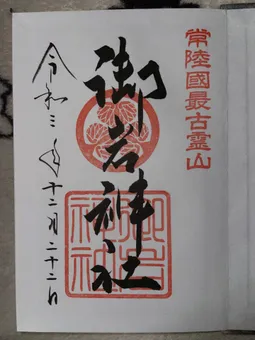 常陸國最古霊山
御岩神社
令和三年十二月二十二日
御岩神社